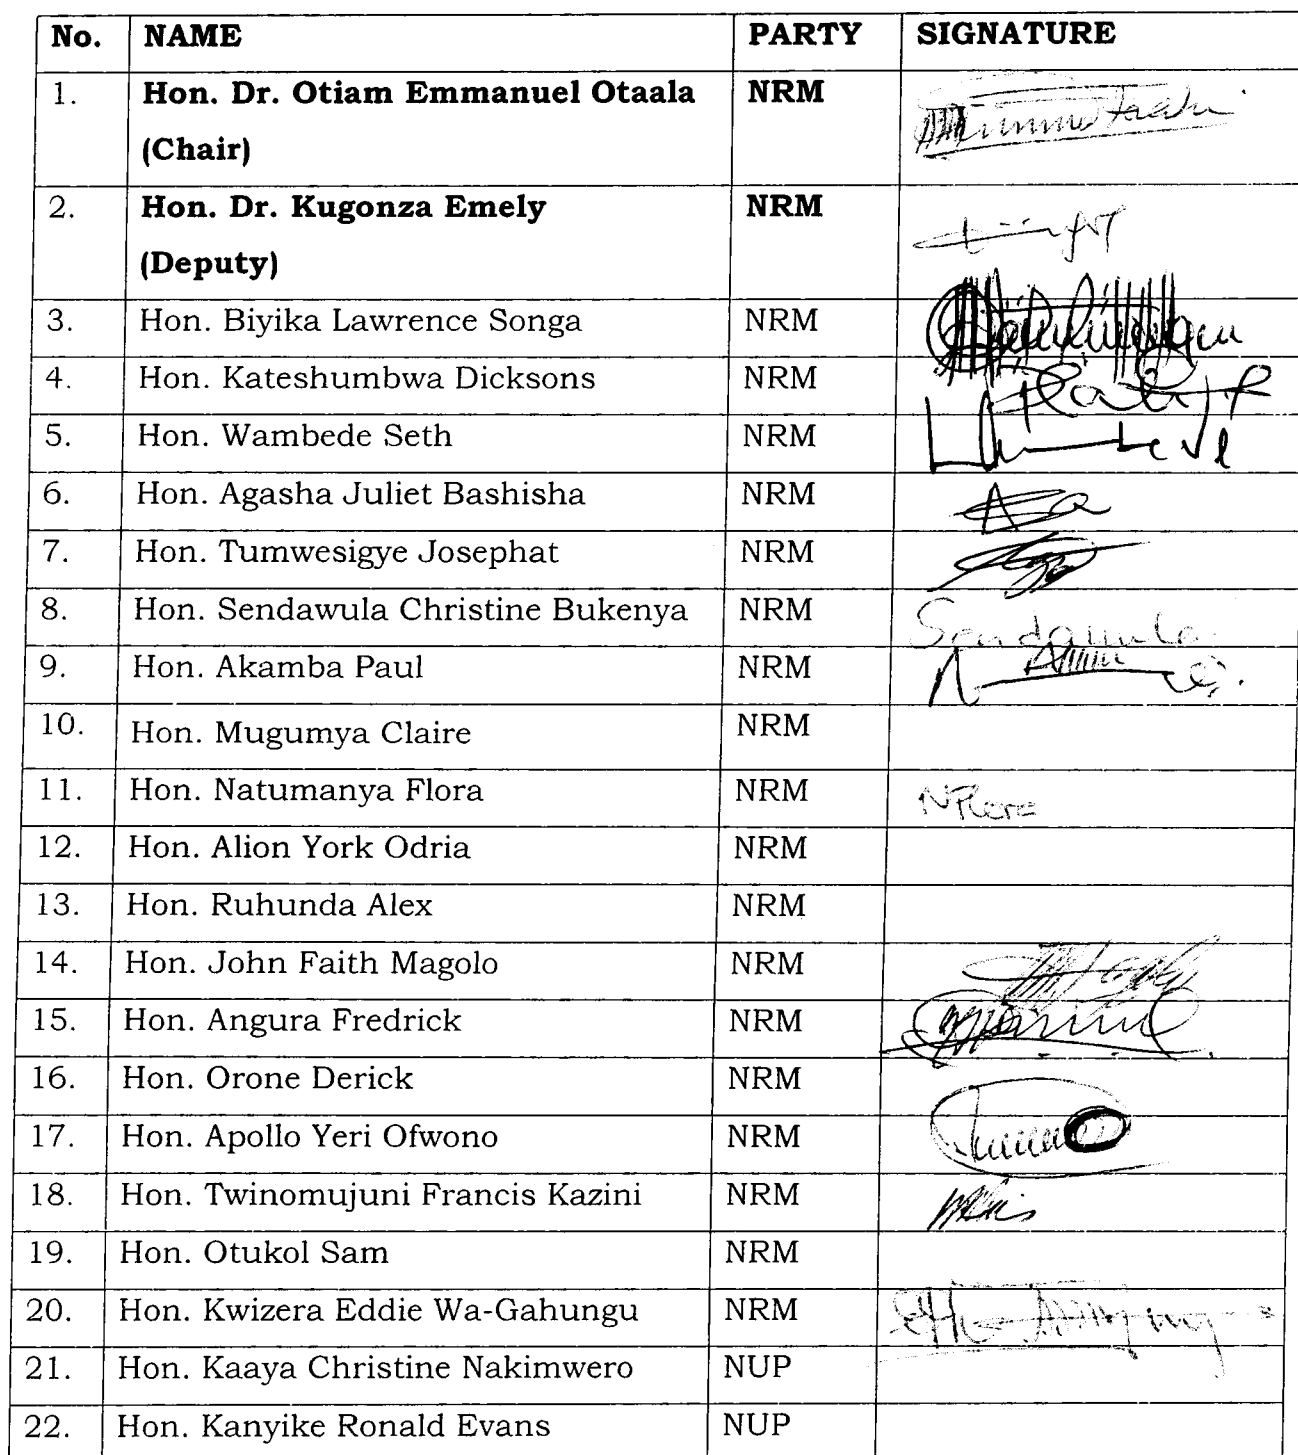 No. NAME PARTY SIGNATURE
1. Hon. Dr. Otiam Emmanuel Otaala NRM
(Chair)
2. Hon. Dr. Kugonza Emely NRM
(Deputy)
3. Hon. Biyika Lawrence Songa NRM
4. Hon. Kateshumbwa Dicksons NRM
5. Hon. Wambede Seth NRM
6. Hon. Agasha Juliet Bashisha NRM
7. Hon. Tumwesigye Josephat NRM
8. Hon. Sendawula Christine Bukenya NRM Sendawula
9. Hon. Akamba Paul NRM
10. Hon. Mugumya Claire NRM
11. Hon. Natumanya Flora NRM NFlora
12. Hon. Alion York Odria NRM
13. Hon. Ruhunda Alex NRM
14. Hon. John Faith Magolo NRM
15. Hon. Angura Fredrick NRM
16. Hon. Orone Derick NRM
17. Hon. Apollo Yeri Ofwono NRM
18. Hon. Twinomujuni Francis Kazini NRM
19. Hon. Otukol Sam NRM
20. Hon. Kwizera Eddie Wa-Gahungu NRM
21. Hon. Kaaya Christine Nakimwero NUP
22. Hon. Kanyike Ronald Evans NUP